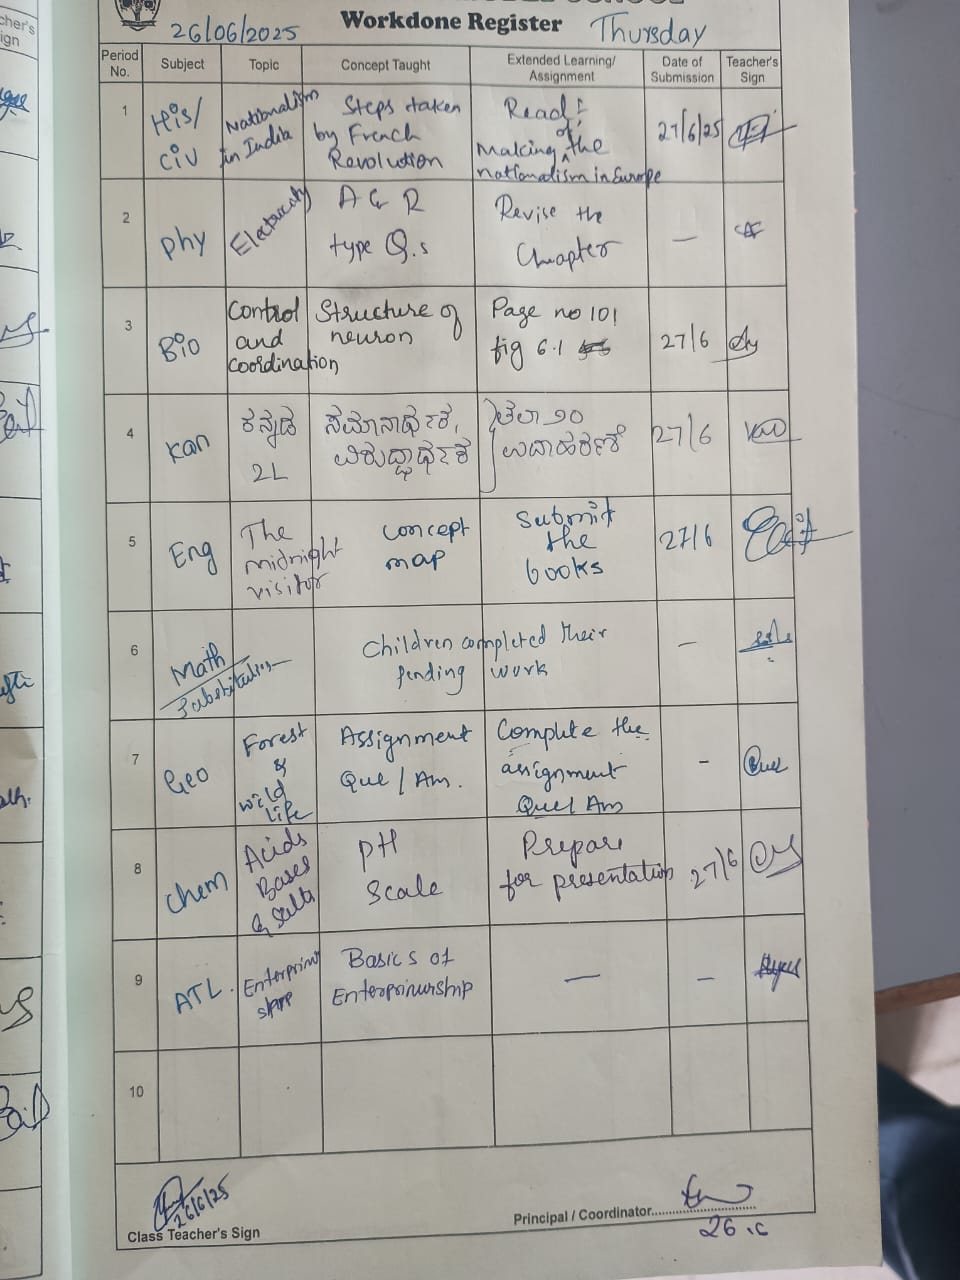 Workdone Register
26/06/2025 Thursday
Period No. Subject Topic Concept Taught Extended Learning/ Assignment Date of Submission Teacher's Sign
1 His/ Civ Nationalism in India Steps taken by French Revolution Read: Making of the nationalism in Europe 27/6/25
2 Phy Electricity A & R type Q.s Revise the Chapter —
3 Bio Control and Coordination Structure of neuron Page no 101 fig 6.1 27/6
4 Kan ಕನ್ನಡ 2L ಸಮಾನಾರ್ಥಕ, ವಿರುದ್ಧಾರ್ಥಕ ಉದಾಹರಣೆ 27/6
5 Eng The midnight visitor Concept map Submit the books 27/6
6 Math/ Substitution Children completed their pending work —
7 Geo Forest & wild life Assignment Que/Ans. Complete the assignment Que/Ans -
8 Chem Acids Bases & Salts pH Scale Prepare for presentation 27/6
9 ATL. Basics of Enterprinurship — —
10
26/6/25
Class Teacher's Sign
Principal / Coordinator
26.6